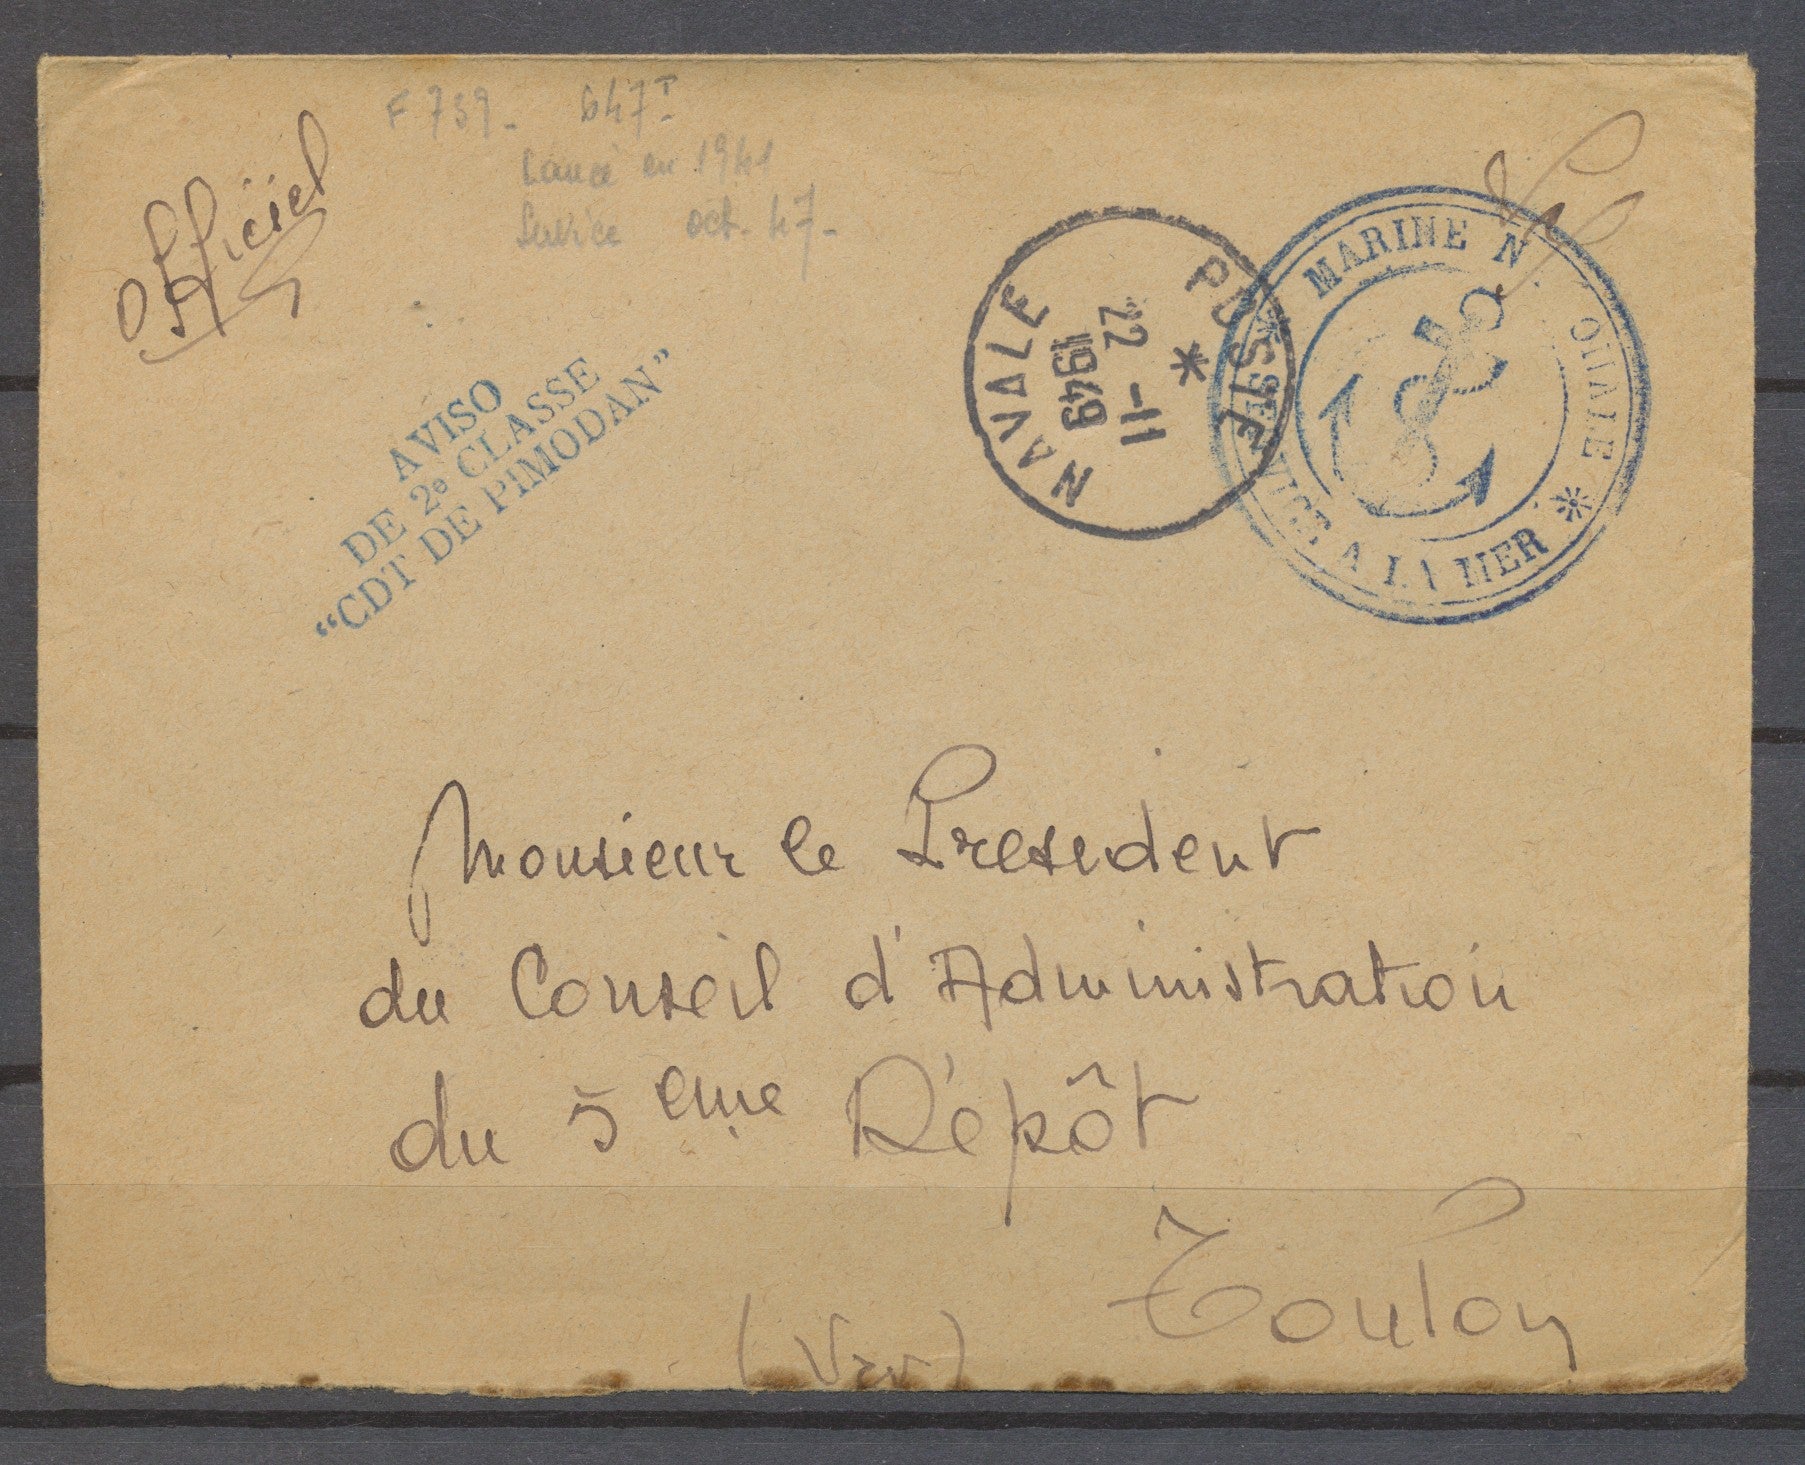 F 739 - 647T
Lancé en 1941
Service oct. 47 -
Officiel
AVISO
DE 2e CLASSE
"CDT DE PIMODAN"
POSTE NAVALE
*
22 -11
1949
MARINE N ONALE
* SERVICE A LA MER *
Monsieur le President
du Conseil d'Administration
du 5eme Dépôt
Toulon
(Var)